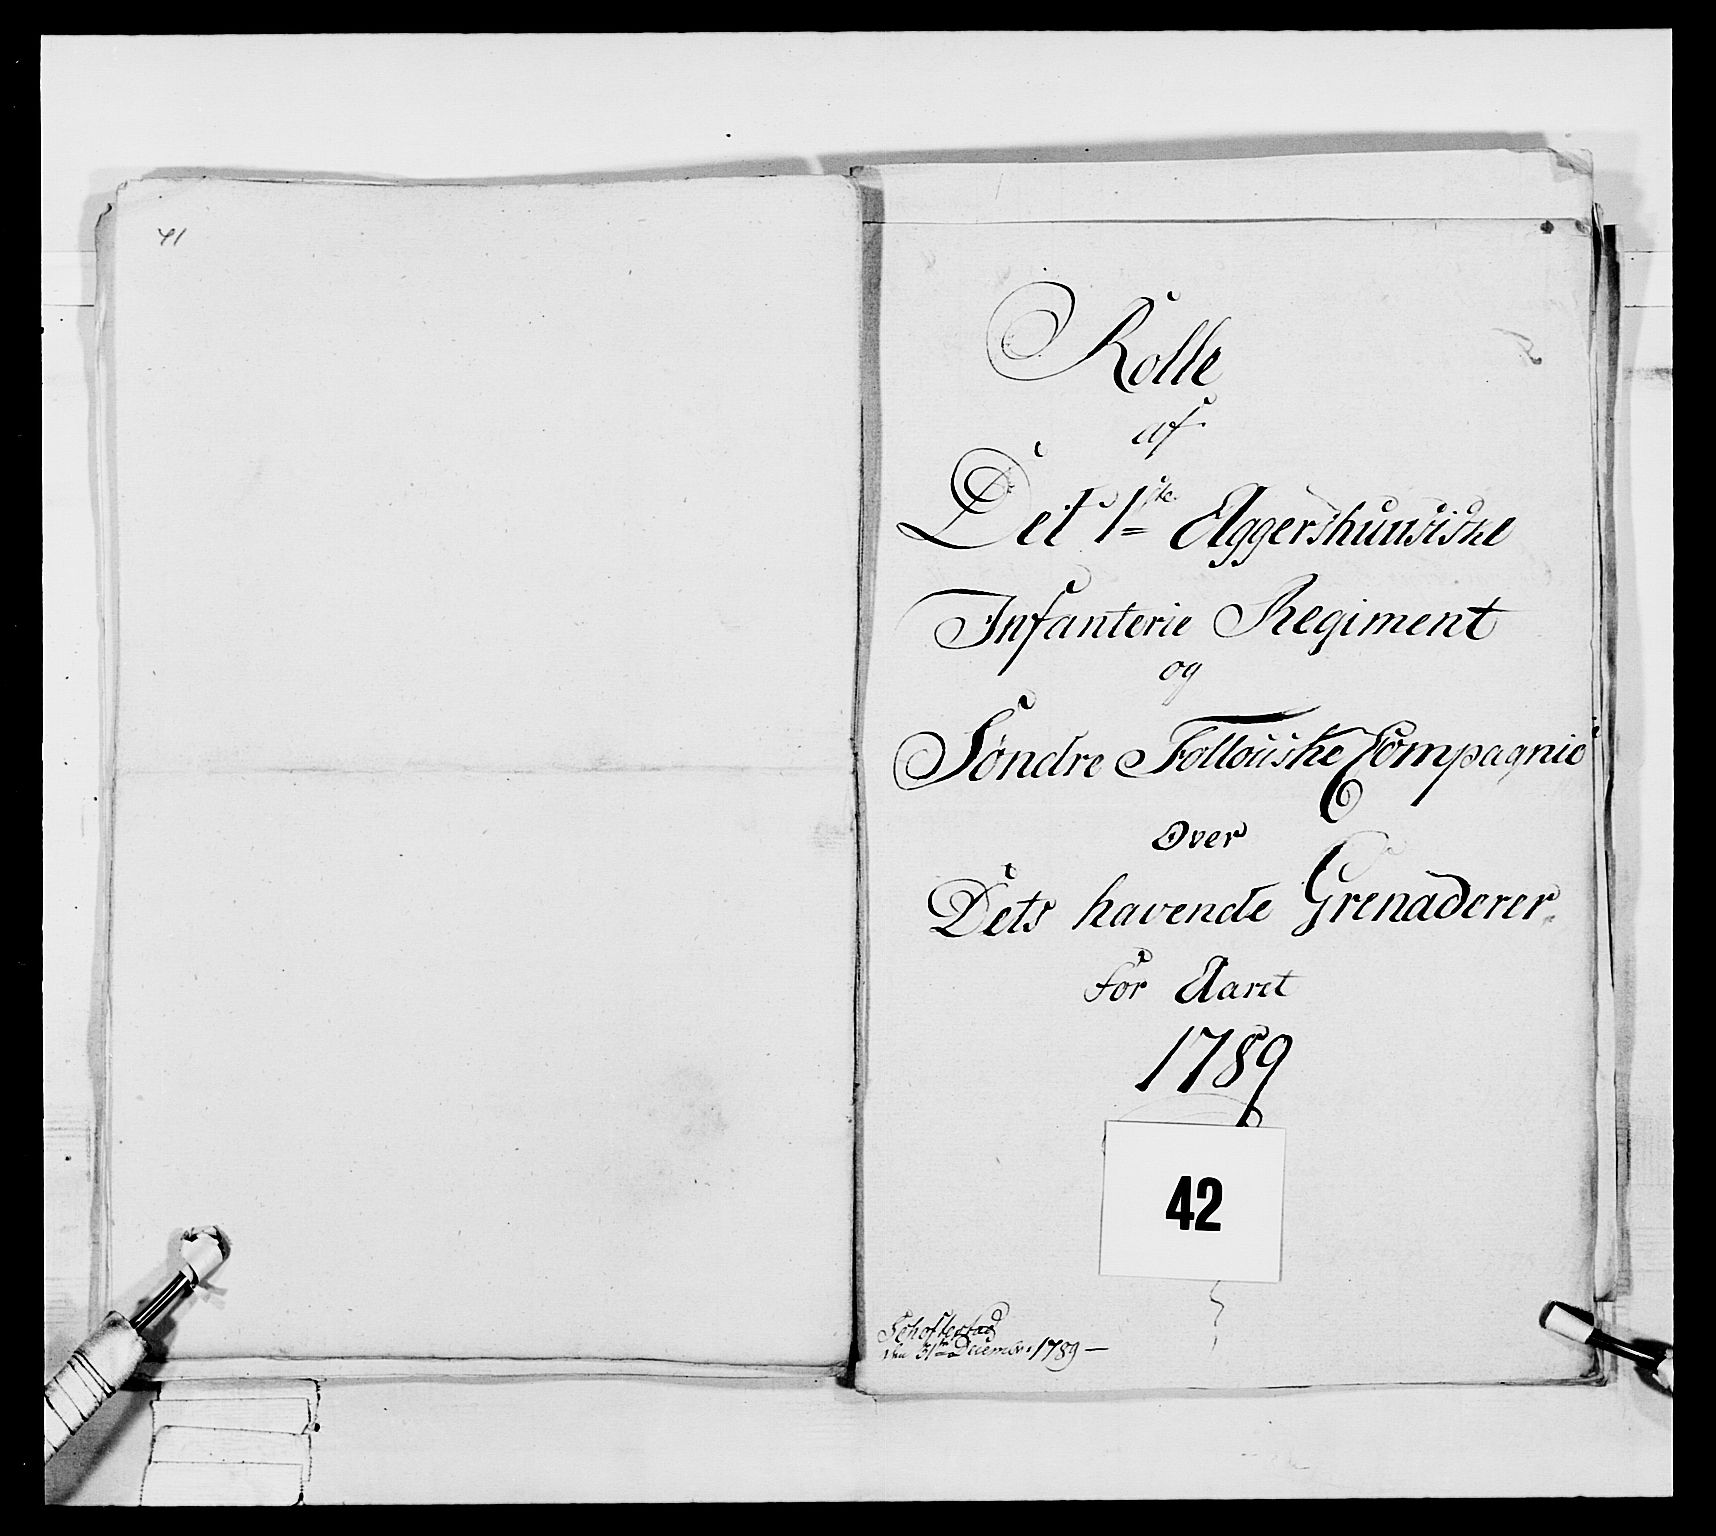 41
Rolle
af
Det 1ste Aggershuusiske
Infanterie Regiment
og
Søndre Follouiske Compagnie
Over
Dets havende Grenaderer
for Aaret
1789
42
den 31te Decembr: 1789 —